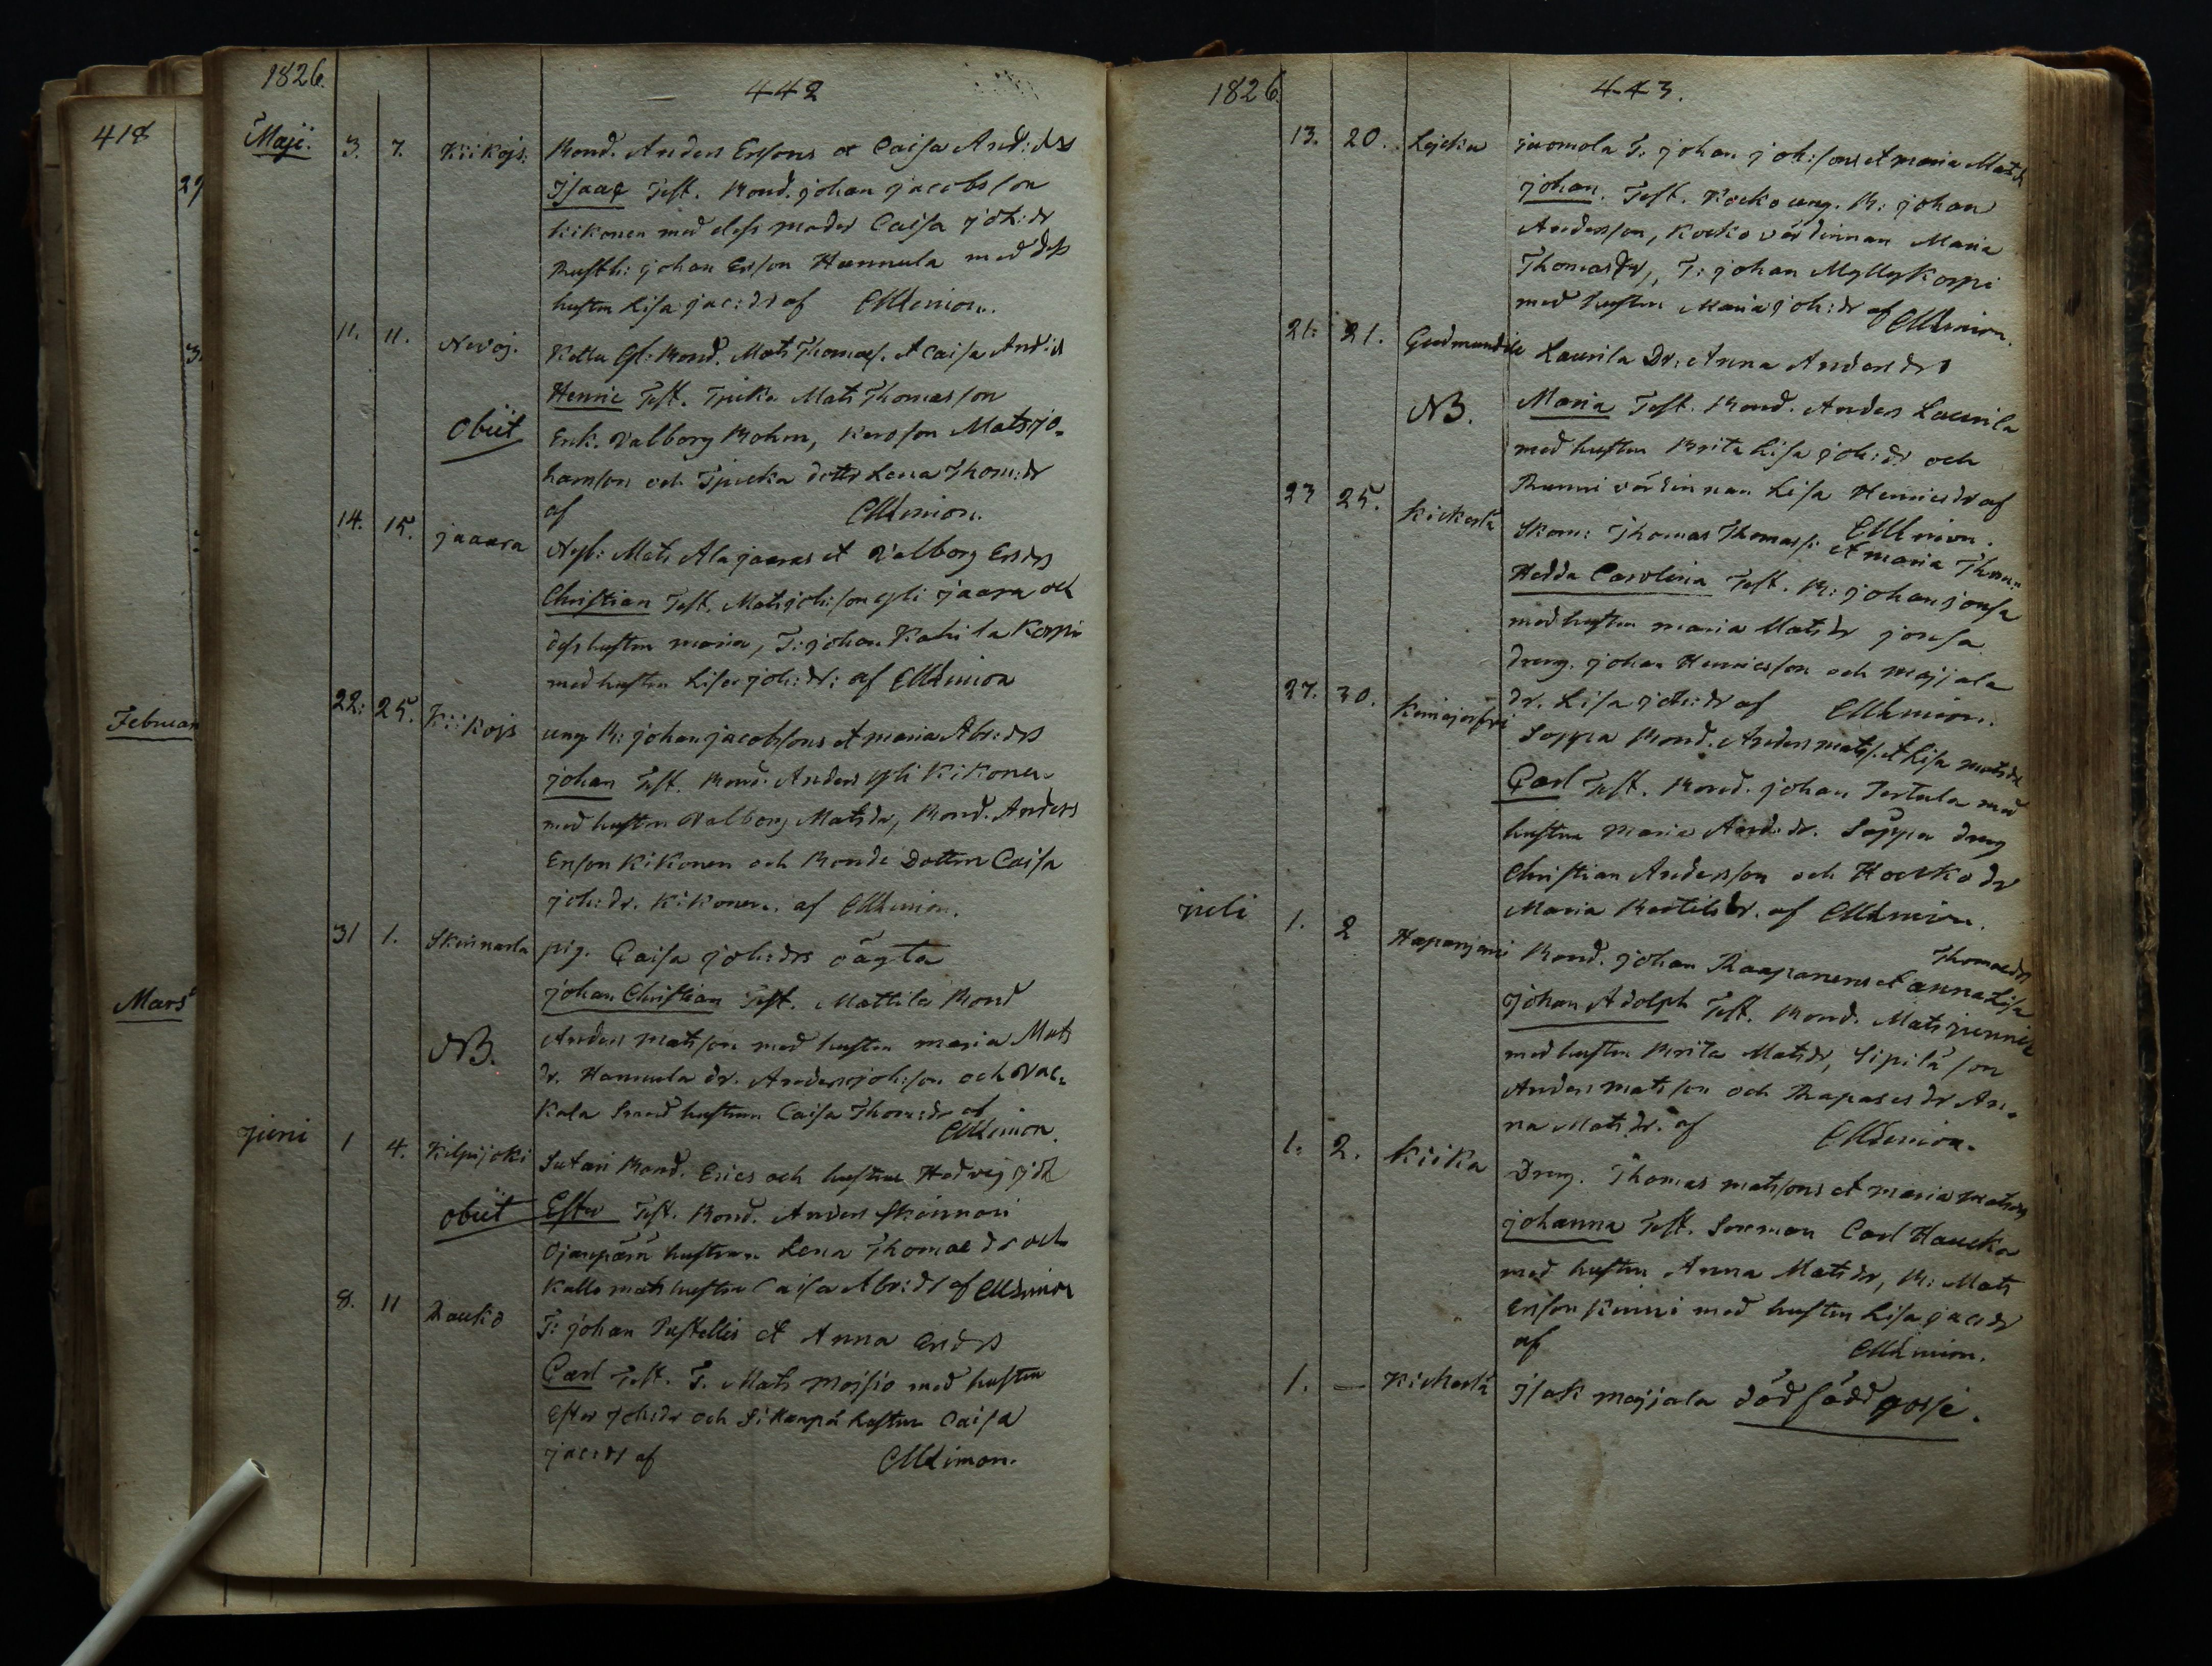 418
29
3
Februari
Mars
1826.
442
Maji. 3. 7. Kiikojs. Bond. Anders Ersons et Caisa And: drs
Isaac Test. Bond. johan jacobsson
Kikonen med dess moder Caisa joh: dr
Rusth: johan Erson Hannula med dess
hustru Lisa jac: dr af CMLimon.
11. 11. Nevoj. Kettu Gl: Bond. Mats Thomas. et Caisa And: d
Henric Test. Mats Thomasson
obiit Enk. Valborg Mats jo-
hansson och dottr Lena Thom: dr
af CMLimon.
14. 15. jaaara Mats Ala jaaras et Valborg Ersdrs
Christian Test. Mats joh:son jaara och
dess hustru maria, T: johan Kahila Korpi
med hustru Lisa joh: dr: af CMLimon
22: 25. Kiikojs ung B: johan jacobssons et maria Abr: drs
johan Test. Bond. Anders Kikonen
med hustru Valborg Matsdr, Bond. Anders
Erson Kikonen och Bonde Dottren Caisa
joh: dr. Kikonen. af CMLimon.
31 1. Skinnarla pig. Caisa joh: drs oägta
johan Christian Test. Mattila Bond
NB. Anders Matsson med hustru maria Mats
dr. Hannula dr. Anders joh:son och Vac=
kala hustrun Caisa Thom: dr af
CMLimon.
juni 1 4. Kilpijoki Sutari Bond. Erics och hustrus Hedvig joh
obiit Ester Test. Bond. Anders Skinnari
Ojanperä hustrun Lena Thomae dr och
Kallo mats hustru Caisa Abr: dr af CMLimon
8. 11 Raukio T: johan Pustellis et Anna Erdrs
Carl Test. T. Mats Moisio med hustru
Ester joh: dr och hustru Caisa
jac: dr af CMLimon.
1826.
443.
13. 20. Lejcku juomola T. johan joh:sons et maria Mats
johan. Test. Kocko ung. B: johan
Andersson, Kocko värdinnan Maria
Thomasdr, T: johan Myllykorpi
med hustru Maria joh: dr af CMLimon.
21: 21. Gudmundila Laurila Dr: Anna Andersdrs
NB. Maria Test. Bond. Anders Laurila
med hustru Brita Lisa joh: dr och
värdinnan Lisa Henricsdr af
CMLimon.
23 25. Kickerlä Skom: Thomas Thomass: et maria Thom:
Hedda Carolina Test. B: johan jonsa
med hustru maria Matsdr jonsa
dreng. johan Henricsson och majjala
dr. Lisa joh: dr af CMLimon.
27. 30. Soppa Bond. Anders mats:. et Lisa matsdr
Carl Test. Bond. johan Tertula med
hustru Maria And: dr. Soppa dreng
Christian Andersson och Hockko dr
Maria Bertilsdr. af CMLimon.
juli 1. 2 Haparijervi Bond. johan Raapanens et anna Lisa Thomaedrs
johan Adolph Test. Bond. Mats junnila
med hustru Brita Matsdr, Sipilä son
Anders matsson och Rapases dr An=
na Matsdr. af CMLimon.
1. 2. Kiika Dreng. Thomas matssons et maria matsdrs
johanna Test. Sexman Carl Haucka
med hustru Anna Matsdr, B: Mats
Erson Kinni med hustru Lisa jac: dr
af CMLimon.
1. — Kickerlä Isak majjala dödfödd gosse.